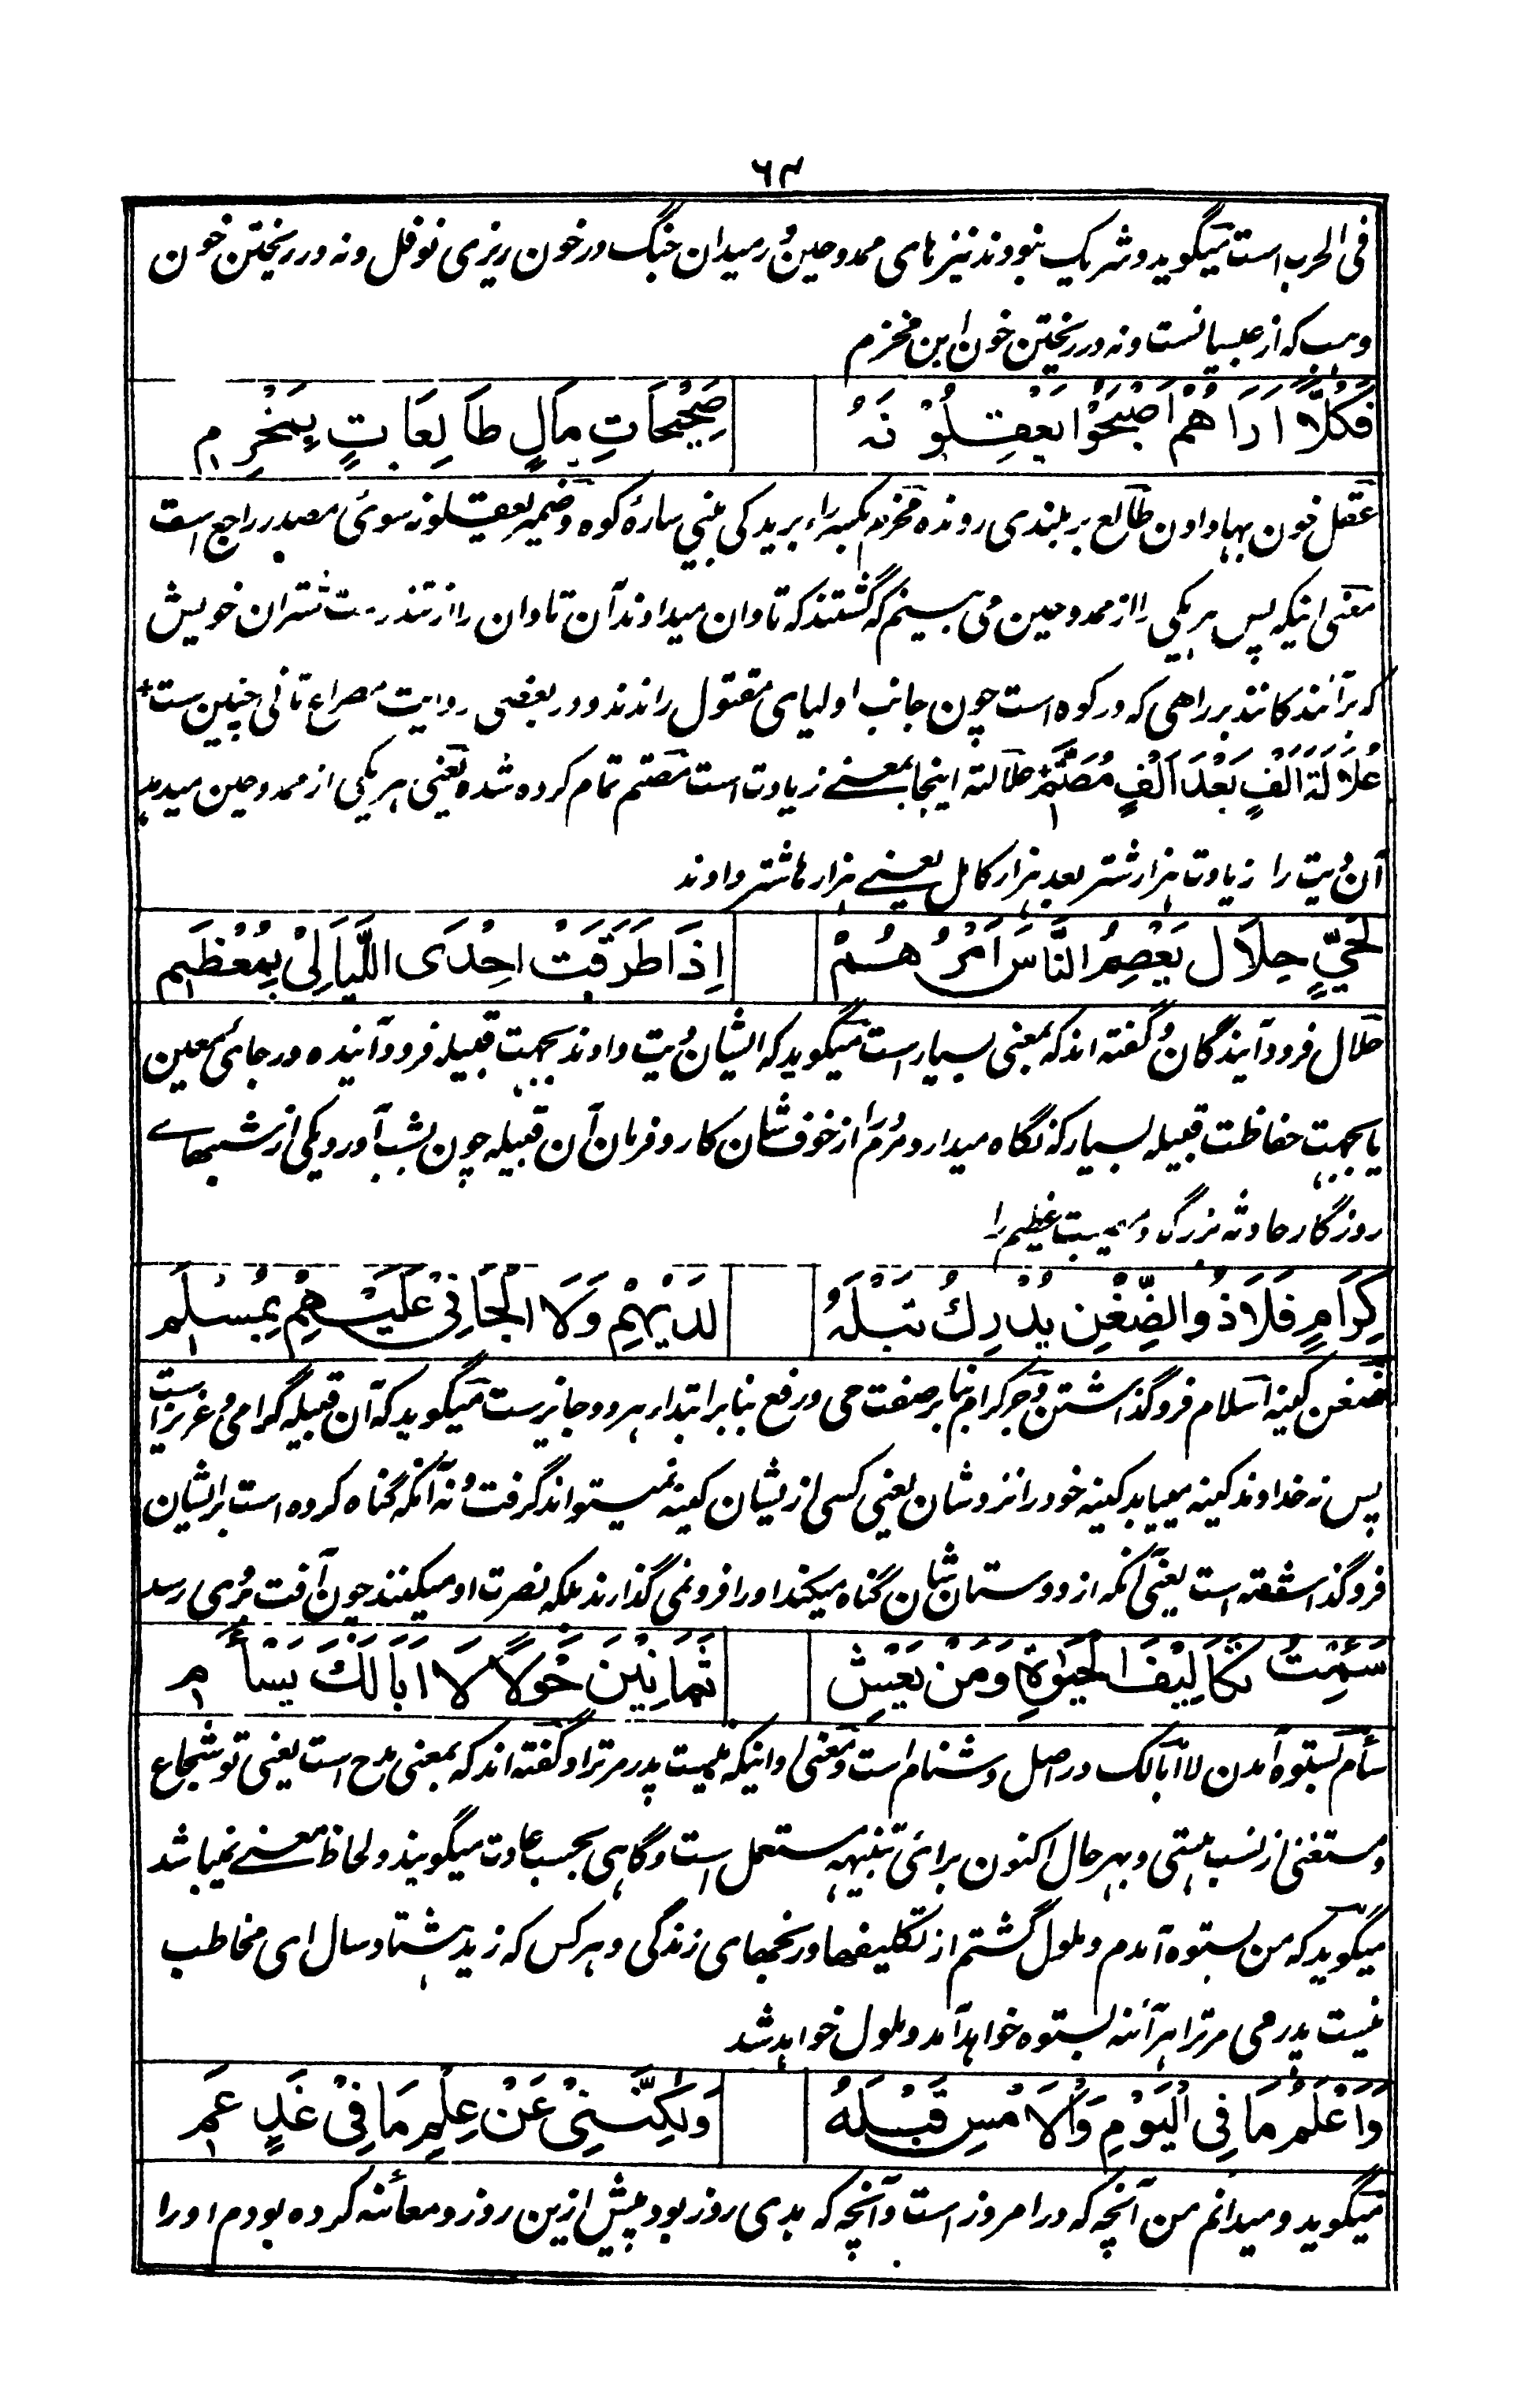 ۶۴
فی الحرب است میگوید و شریک نبودند نیزهای ممدوحین در میدان جنگ در خون ریزی نوفل و نه در ریختن خون
وهب که از عبسیانست و نه در ریختن خون ابن مخزم
فَكُلّاً اَرَاهُمْ اَصْبَحُوْا يَعْقِلُوْنَهُ صَحِيْحَاتِ مَالٍ طَالِعَاتٍ بِمَخْرِمِ
عقل خون بها دادن طالع بر بلندی رونده مخرم بکسر راء بریدگی بینی ساره کوه و ضمیر یعقلونه سوئ مصدر راجع است
معنی اینکه پس هر یکی را از ممدوحین می بینم که گشتند که تاوان میدادند آن تاوان را از تندرست شتران خویش
که برآنند کانند بر راهی که در کوه است چون جانب اولیای مقتول راندند و در بعضی روایت مصراع ثانی چنین ست
عُلَالَةَ اَلْفٍ بَعْدَ اَلْفٍ مُصَتَّمٍ علالته اینجا بمعنے زیادت است مصتم تمام کرده شده یعنی هر یکی از ممدوحین میدید
آن دیت را زیادت هزار شتر بعد هزار کامل یعنے هزارها شتر دادند
لِحَيٍّ حِلَالٍ يَعْصِمُ النَّاسَ اَمْرُهُمْ اِذَا طَرَقَتْ اِحْدَى اللَّيَالِىْ بِمُعْظَمِ
حلال فرود آیندگان و گفته اند که بمعنی بسیار است میگوید که ایشان دیت دادند بجهت قبیله فرود آینده در جائ معین
یا بجهت حفاظت قبیله بسیار که نگاه میدارد مردم را از خوف شان کار و فرمان آن قبیله چون بشب آورد یکی از شبهاے
روزگار حادثه بزرگ و مصیبت عظیم را
كِرَامٍ فَلَا ذُو الضِّغْنِ يُدْرِكُ تَبْلَهُ لَدَيْهِمْ وَلَا الْجَانِىْ عَلَيْهِمْ بِمُسْلَمِ
ضغن کینه اسلام فروگذاشتن و جر کرام بنا بر صفت حی و رفع بنا بر ابتداء هر دو جائز ست میگوید که آن قبیله گرامی و عزیز است
پس نه خداوند کینه مییابد کینه خود را نزد شان یعنی کسی از یشان کینه نمیتواند گرفت و نه آنکه گناه کرده است بر ایشان
فروگذاشته است یعنی آنکه از دوستان شان گناه میکند او را فرو نمی گذارند بلکه نصرت او میکنند چون آفت مردی رسد
سَئِمْتُ تَكَالِيْفَ الْحَيٰوةِ وَمَنْ يَعِشْ ثَمَانِيْنَ حَوْلًا لَا اَبَا لَكَ يَسْأَمِ
سأم بستوه آمدن لا ابا لک در اصل دشنام است و معنی او اینکه نیست پدر مر ترا و گفته اند که بمعنی مدح است یعنی تو شجاع
و مستغنی از نسب هستی و بهر حال اکنون برائ تنبیه مستعمل است و گاهی بحسب عادت میگویند و لحاظ معنے نمیباشد
میگوید که من بستوه آمدم و ملول گشتم از تکلیفها و رنجهای زندگی و هر کس که زید هشتاد سال ای مخاطب
نیست پدر می مر ترا هر آئنه بستوه خواهد آمد و ملول خواهد شد
وَاَعْلَمُ مَا فِى الْيَوْمِ وَالْاَمْسِ قَبْلَهُ وَلٰكِنَّنِىْ عَنْ عِلْمِ مَا فِىْ غَدٍ عَمِ
میگوید و میدانم من آنچه که در امروز است و آنچه که بدی روز بود پیش ازین روز و معائنه کرده بودم او را